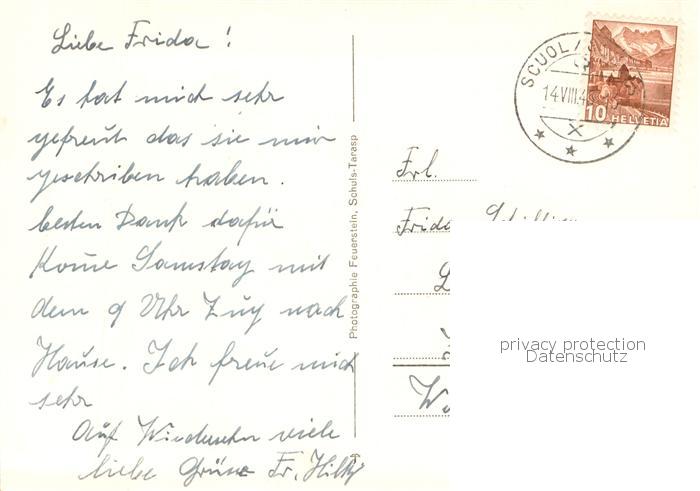 Liebe Frida !
Es hat mich sehr
gefreut das sie mir
geschriben haben.
besten Dank dafür
Kome Samstag mit
dem 9 Uhr Zug nach
Hause. Ich freue mich
sehr
Auf Wiedersehn viele
liebe Grüsse Fr. Hilty
Photographie Feuerstein, Schuls-Tarasp
SCUOL/S
14 VIII.4
10 HELVETIA
Frl.
Frida
privacy protection
Datenschutz